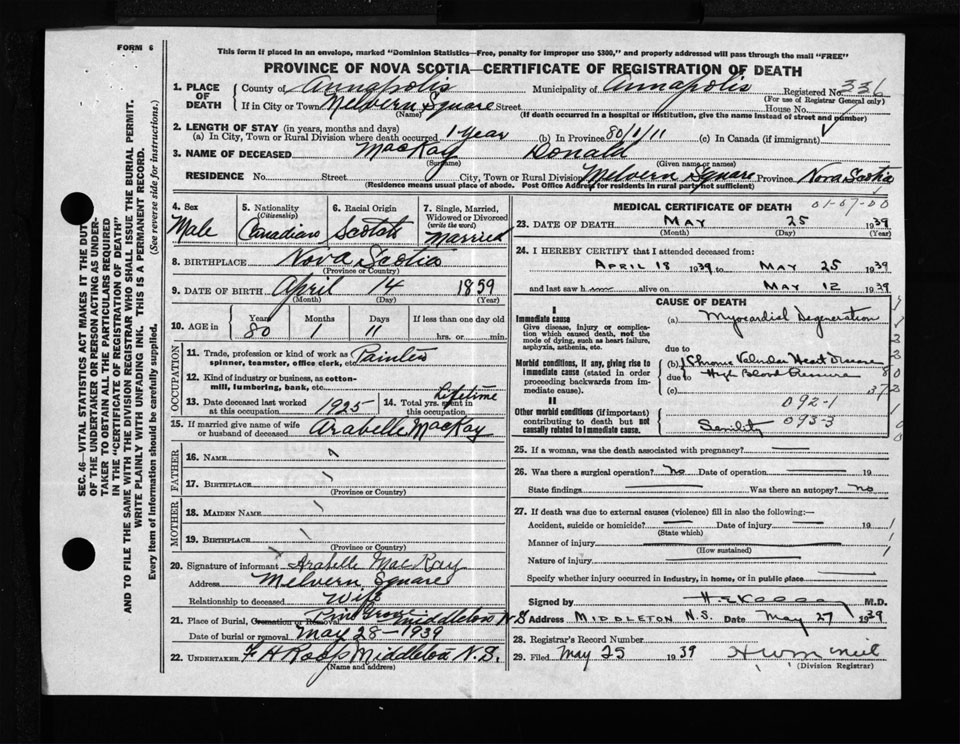 FORM 6
This form if placed in an envelope, marked "Dominion Statistics—Free, penalty for improper use $300," and properly addressed will pass through the mail "FREE"
PROVINCE OF NOVA SCOTIA—CERTIFICATE OF REGISTRATION OF DEATH
SEC. 46—VITAL STATISTICS ACT MAKES IT THE DUTY
OF THE UNDERTAKER OR PERSON ACTING AS UNDER-
TAKER TO OBTAIN ALL THE PARTICULARS REQUIRED
IN THE "CERTIFICATE OF REGISTRATION OF DEATH"
AND TO FILE THE SAME WITH THE DIVISION REGISTRAR WHO SHALL ISSUE THE BURIAL PERMIT.
WRITE PLAINLY WITH UNFADING INK. THIS IS A PERMANENT RECORD.
Every item of information should be carefully supplied. (See reverse side for instructions.)
1. PLACE OF DEATH
County of Annapolis Municipality of Annapolis Registered No. 336
(For use of Registrar General only)
If in City or Town Melvern Square Street House No.
(Name) (If death occurred in a hospital or institution, give the name instead of street and number)
2. LENGTH OF STAY (in years, months and days)
(a) In City, Town or Rural Division where death occurred 1 year (b) In Province 80/1/11 (c) In Canada (if immigrant)
3. NAME OF DECEASED MacKay Donald
(Surname) (Given name or names)
RESIDENCE No. Street City, Town or Rural Division Melvern Square Province Nova Scotia
(Residence means usual place of abode. Post Office Address for residents in rural parts not sufficient)
4. Sex
Male
5. Nationality
(Citizenship)
Canadian
6. Racial Origin
Scotch
7. Single, Married,
Widowed or Divorced
(write the word)
Married
8. BIRTHPLACE Nova Scotia
(Province or Country)
9. DATE OF BIRTH April 14 1859
(Month) (Day) (Year)
10. AGE in Years Months Days If less than one day old
80 1 11 hrs. or min.
OCCUPATION
11. Trade, profession or kind of work as Painter
spinner, teamster, office clerk, etc.
12. Kind of industry or business, as cotton-
mill, lumbering, bank, etc.
13. Date deceased last worked
at this occupation 1925
14. Total yrs. spent in
this occupation Lifetime
15. If married give name of wife
or husband of deceased Arabelle MacKay
FATHER
16. NAME
17. BIRTHPLACE
(Province or Country)
MOTHER
18. MAIDEN NAME
19. BIRTHPLACE
(Province or Country)
20. Signature of informant Arabelle MacKay
Address Melvern Square
Relationship to deceased Wife
21. Place of Burial, Cremation or Removal Pine Grove Middleton N.S
Date of burial or removal May 28—1939
22. UNDERTAKER F H Roop Middleton N.S.
(Name and address)
MEDICAL CERTIFICATE OF DEATH
01-07-00
23. DATE OF DEATH MAY 25 1939
(Month) (Day) (Year)
24. I HEREBY CERTIFY that I attended deceased from:
APRIL 18 1939 to MAY 25 1939
and last saw him alive on MAY 12 1939
CAUSE OF DEATH
I
Immediate cause
Give disease, injury or complica-
tion which caused death, not the
mode of dying, such as heart failure,
asphyxia, asthenia, etc.
(a) Myocardial Degeneration
due to
Morbid conditions, if any, giving rise to
immediate cause (stated in order
proceeding backwards from im-
mediate cause).
(b) Chronic Valvular Heart Disease
due to High Blood Pressure
(c)
092-1
II
Other morbid conditions (if important)
contributing to death but not
causally related to immediate cause.
093-3
Senility
25. If a woman, was the death associated with pregnancy?
26. Was there a surgical operation? No Date of operation 19
State findings Was there an autopsy? No
27. If death was due to external causes (violence) fill in also the following:—
Accident, suicide or homicide? Date of injury 19
(State which)
Manner of injury
(How sustained)
Nature of injury
Specify whether injury occurred in industry, in home, or in public place
Signed by M.D.
Address MIDDLETON N.S. Date May 27 1939
28. Registrar's Record Number
29. Filed May 25 1939
(Division Registrar)